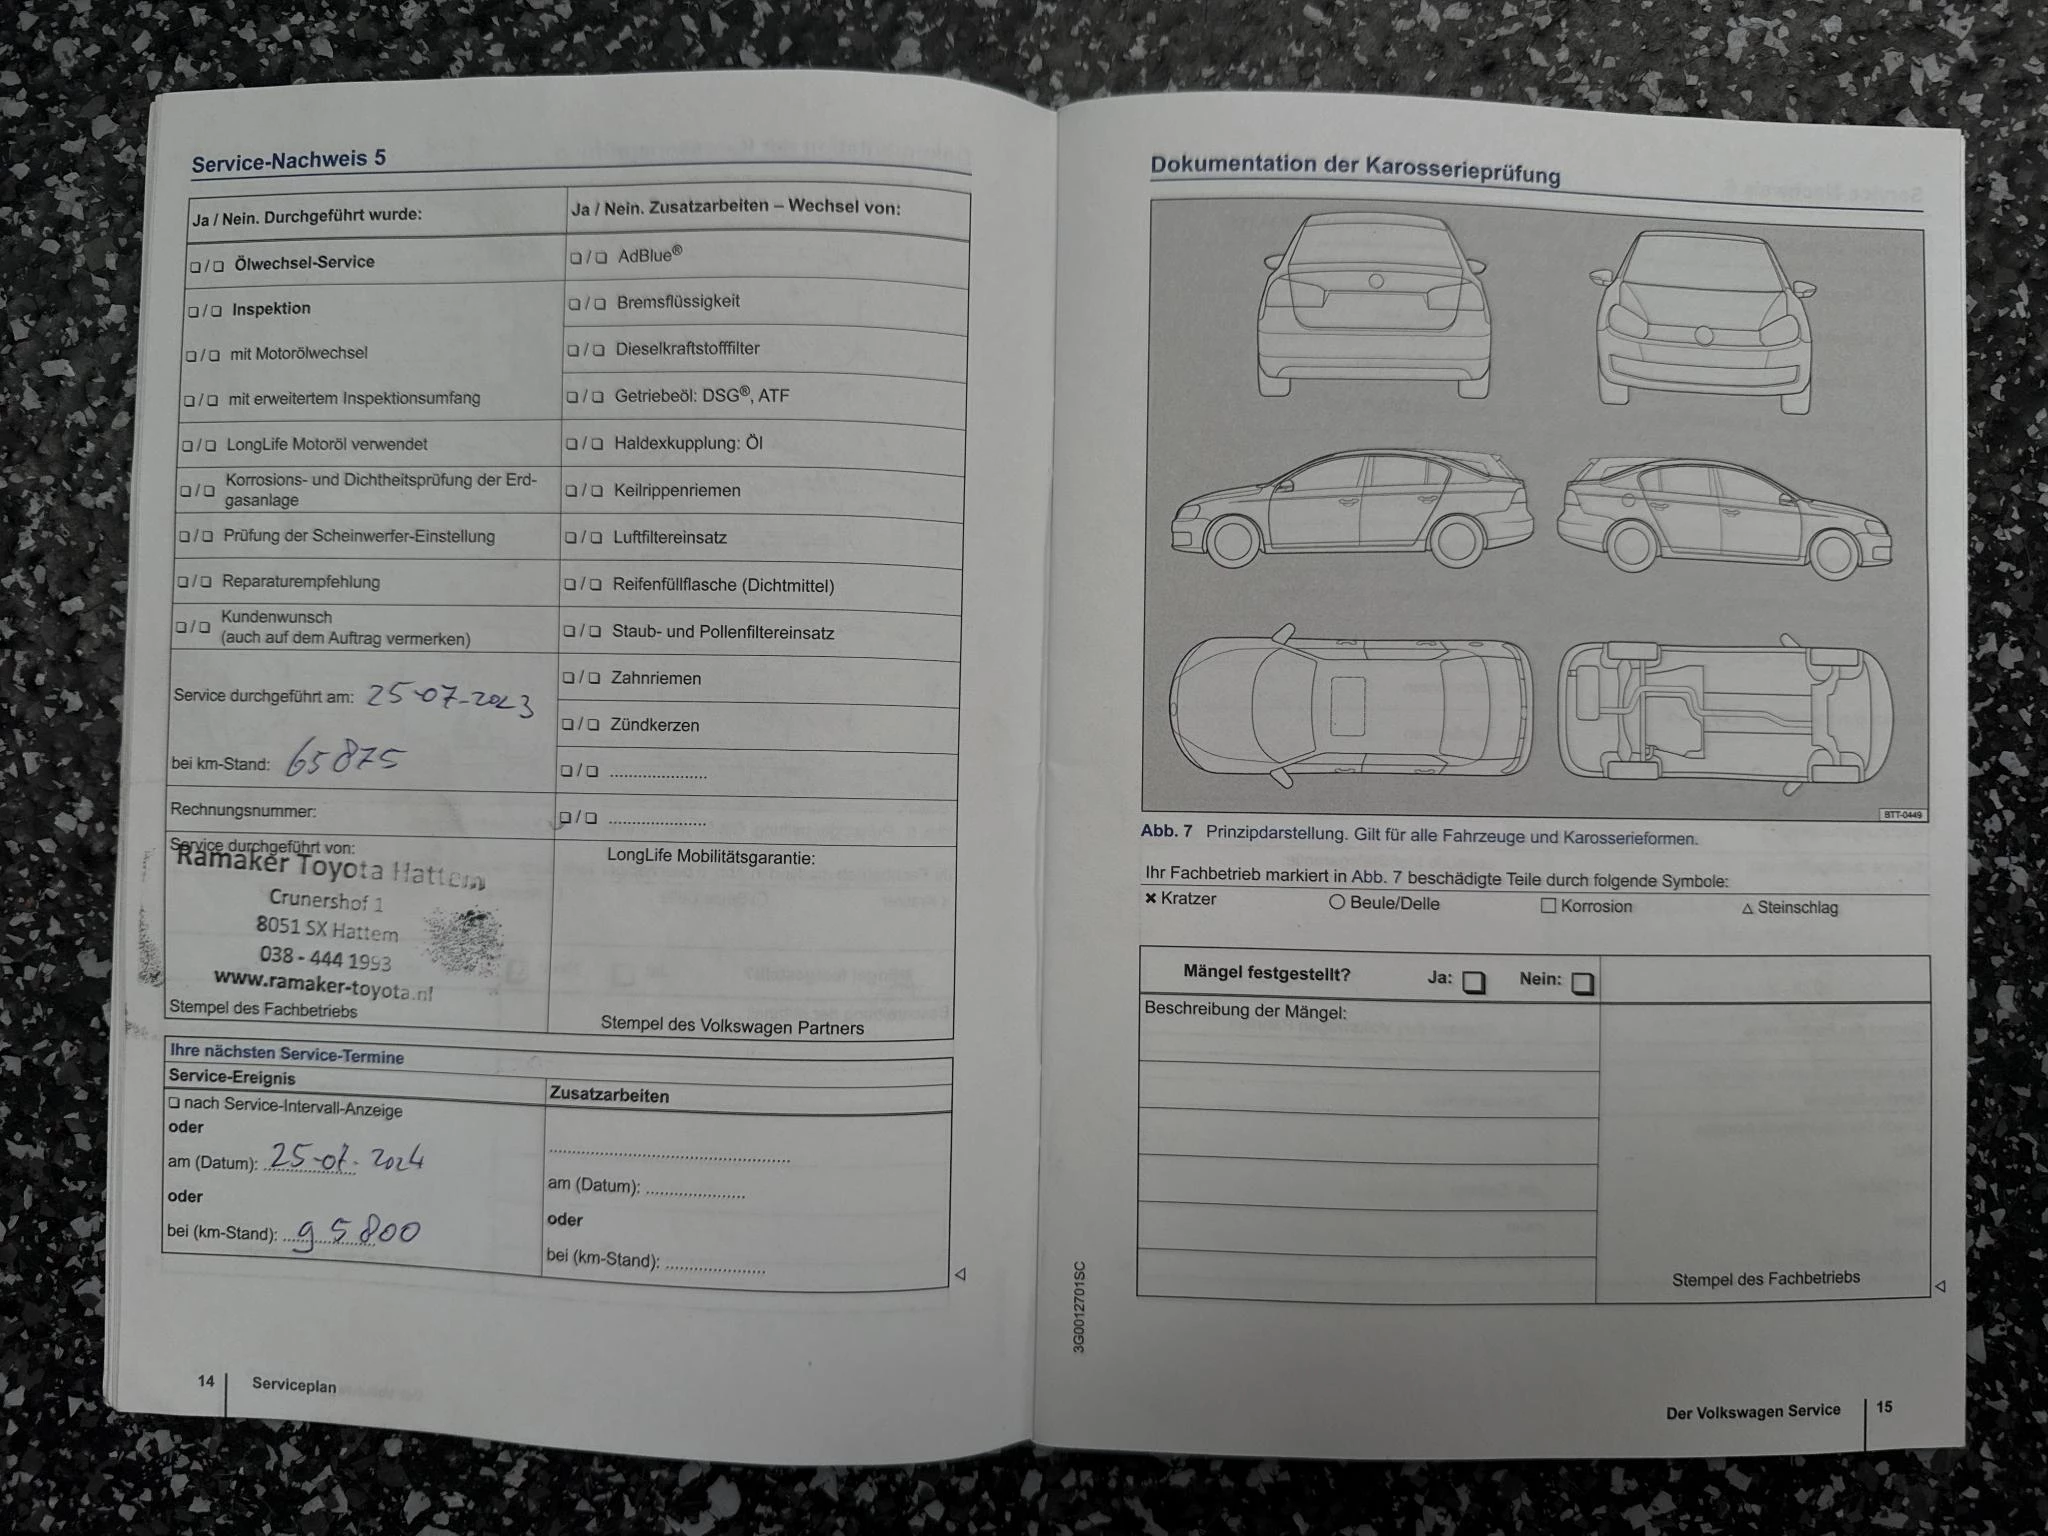 Service-Nachweis 5
Ja / Nein. Durchgeführt wurde:
❏ / ❏ Ölwechsel-Service
❏ / ❏ Inspektion
❏ / ❏ mit Motorölwechsel
❏ / ❏ mit erweitertem Inspektionsumfang
❏ / ❏ LongLife Motoröl verwendet
❏ / ❏ Korrosions- und Dichtheitsprüfung der Erd-
gasanlage
❏ / ❏ Prüfung der Scheinwerfer-Einstellung
❏ / ❏ Reparaturempfehlung
❏ / ❏ Kundenwunsch
(auch auf dem Auftrag vermerken)
Service durchgeführt am: 25-07-2023
bei km-Stand: 65875
Rechnungsnummer:
Service durchgeführt von:
Ramaker Toyota Hattem
Crunershof 1
8051 SX Hattem
038 - 444 1993
www.ramaker-toyota.nl
Stempel des Fachbetriebs
Ja / Nein. Zusatzarbeiten – Wechsel von:
❏ / ❏ AdBlue®
❏ / ❏ Bremsflüssigkeit
❏ / ❏ Dieselkraftstofffilter
❏ / ❏ Getriebeöl: DSG®, ATF
❏ / ❏ Haldexkupplung: Öl
❏ / ❏ Keilrippenriemen
❏ / ❏ Luftfiltereinsatz
❏ / ❏ Reifenfüllflasche (Dichtmittel)
❏ / ❏ Staub- und Pollenfiltereinsatz
❏ / ❏ Zahnriemen
❏ / ❏ Zündkerzen
❏ / ❏ .....................
❏ / ❏ .....................
LongLife Mobilitätsgarantie:
Stempel des Volkswagen Partners
Ihre nächsten Service-Termine
Service-Ereignis
❏ nach Service-Intervall-Anzeige
oder
am (Datum): 25-07-2024
oder
bei (km-Stand): 95800
Zusatzarbeiten
.....................
am (Datum): .....................
oder
bei (km-Stand): .....................
14 Serviceplan
Dokumentation der Karosserieprüfung
BTT-0449
Abb. 7 Prinzipdarstellung. Gilt für alle Fahrzeuge und Karosserieformen.
Ihr Fachbetrieb markiert in Abb. 7 beschädigte Teile durch folgende Symbole:
✖ Kratzer ○ Beule/Delle □ Korrosion △ Steinschlag
Mängel festgestellt? Ja: ❏ Nein: ❏
Beschreibung der Mängel:
Stempel des Fachbetriebs
3G0012701SC
Der Volkswagen Service 15